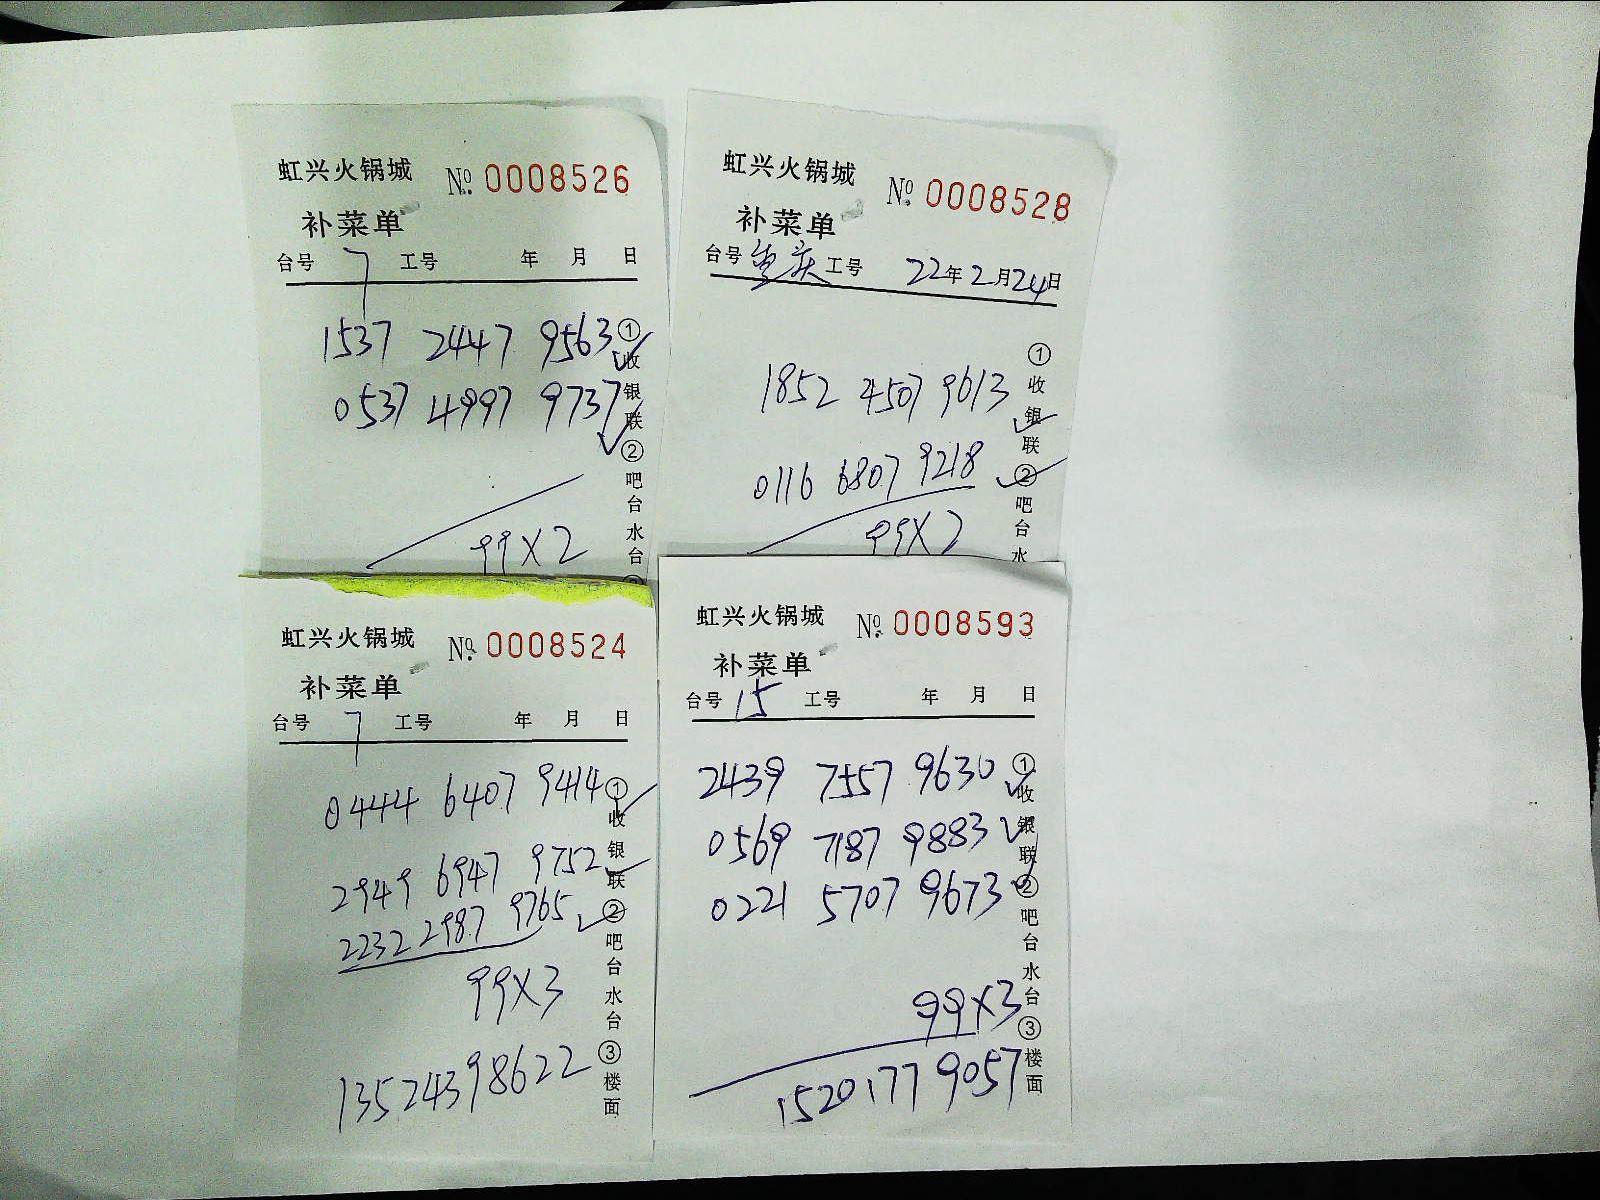 虹兴火锅城 № 0008526
补菜单
台号 7 工号 年 月 日
1537 2447 9563
0537 4997 9737
99X2
①收银联②吧台水台
虹兴火锅城 № 0008528
补菜单
台号 重庆 工号 22年2月24日
1852 4507 9613
0116 6807 9218
99X2
①收银联②吧台水
虹兴火锅城 № 0008524
补菜单
台号 7 工号 年 月 日
0444 6407 9414
2949 6947 9752
2232 2987 9765
99X3
13524398622
①收银联②吧台水台③楼面
虹兴火锅城 № 0008593
补菜单
台号 15 工号 年 月 日
2439 7557 9630
0569 7187 9883
0221 5707 9673
99X3
15201779057
①收银联②吧台水台③楼面